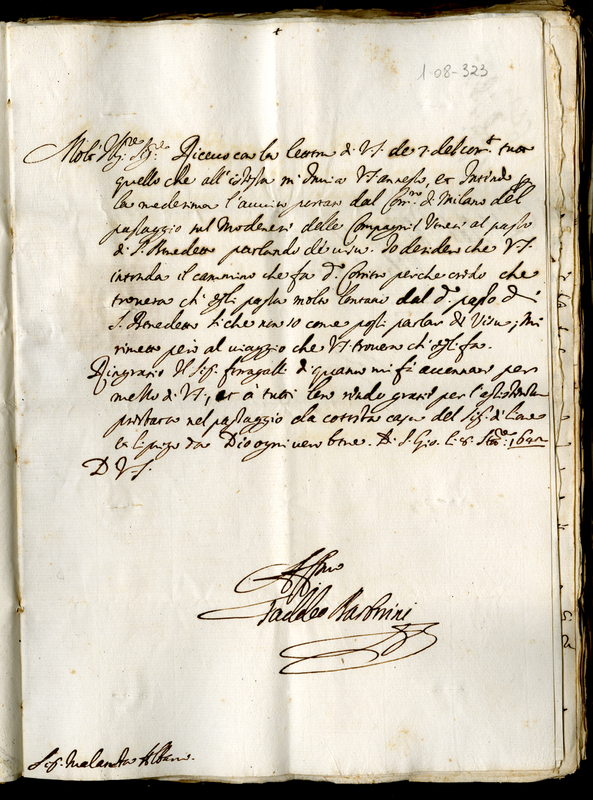 1-08-323
Molt' Ill.re Sig.re Riceuo con la lettera di V.S. de 7 del cor.te tutto
quello che all'istessa mi inuia V.S. annesso, et intendo
la medesima l'auuiso portato dal Corr.re di Milano del
passaggio sul Modenese delle Compagnie Venete al passo
di S. Benedetto parlando de uisu. Io desidero che V.S.
intenda il cammino che fa d.o Corriero perche credo che
trouerà ch'egli passa molto lontano dal d.o passo di
S. Benedetto si che non so come possi parlar di Visu; Mi
rimetto però al uiaggio che V.S. trouerà ch'egli fa.
Ringratio il Sig. Ferragalli di quanto mi fà accennare per
mezzo di V.S., et à tutti loro rendo gratie per l'assistenza
prestata nel passaggio da cotesta casa del Sig.
li prego da Dio ogni uero bene. Di S. Gio. li 8 1642
D V.S.
Aff.mo
Taddeo Barberini
Sig.